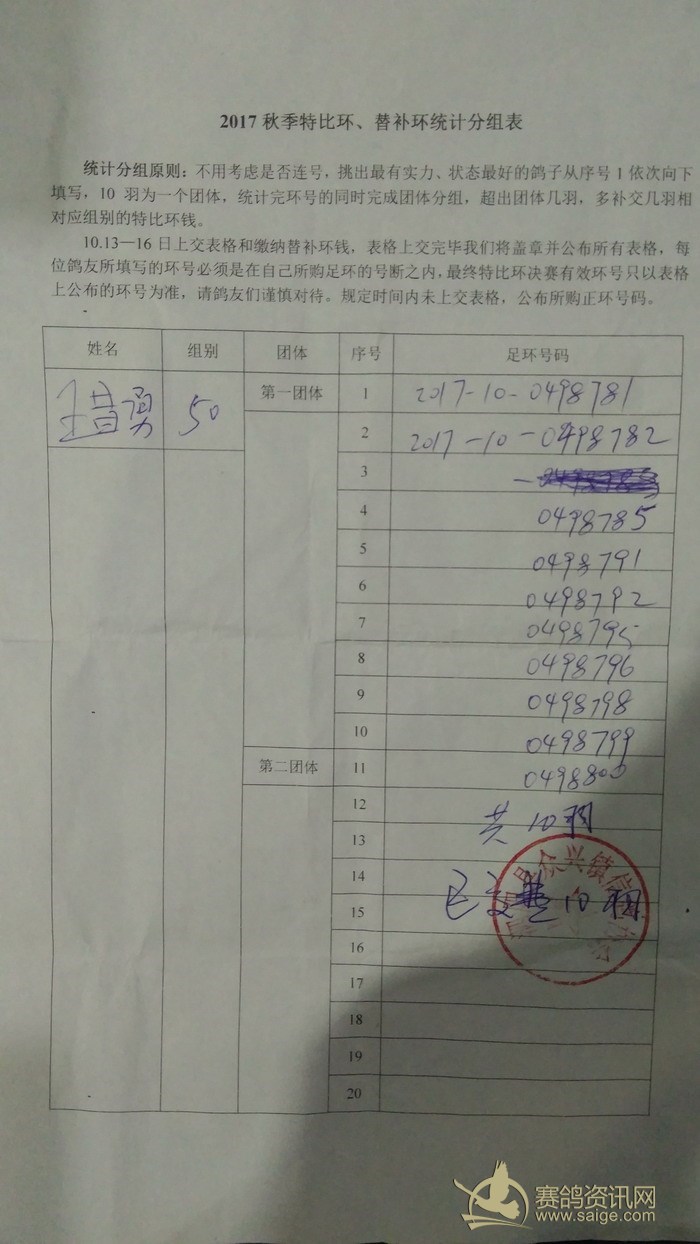 2017 秋季特比环、替补环统计分组表
统计分组原则：不用考虑是否连号，挑出最有实力、状态最好的鸽子从序号 1 依次向下
填写，10 羽为一个团体，统计完环号的同时完成团体分组，超出团体几羽，多补交几羽相
对应组别的特比环钱。
10.13—16 日上交表格和缴纳替补环钱，表格上交完毕我们将盖章并公布所有表格，每
位鸽友所填写的环号必须是在自己所购足环的号断之内，最终特比环决赛有效环号只以表格
上公布的环号为准，请鸽友们谨慎对待。规定时间内未上交表格，公布所购正环号码。
姓名 组别 团体 序号 足环号码
勇 50 第一团体 1 2017-10-0498781
2 2017-10-0498782
3
4 0498785
5 0498791
6 0498792
7 0498795
8 0498796
9 0498798
10 0498799
第二团体 11 0498800
12
共10羽
13
14
众兴镇信
15 已交 10
16
17
18
19
20
赛鸽资讯网
www.saige.com